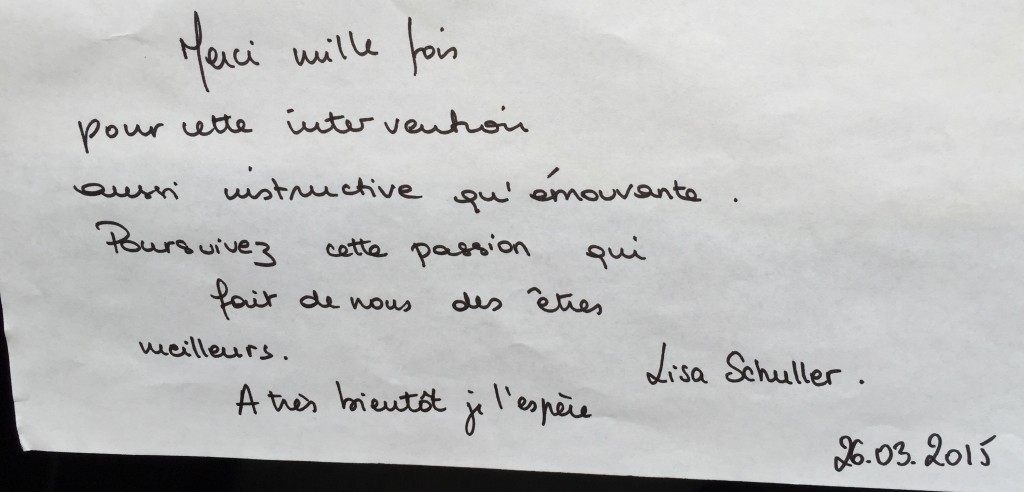 Merci mille fois
pour cette intervention
aussi instructive qu'émouvante.
Poursuivez cette passion qui
fait de nous des êtres
meilleurs.
Lisa Schuller.
A très bientôt je l'espère
26.03.2015